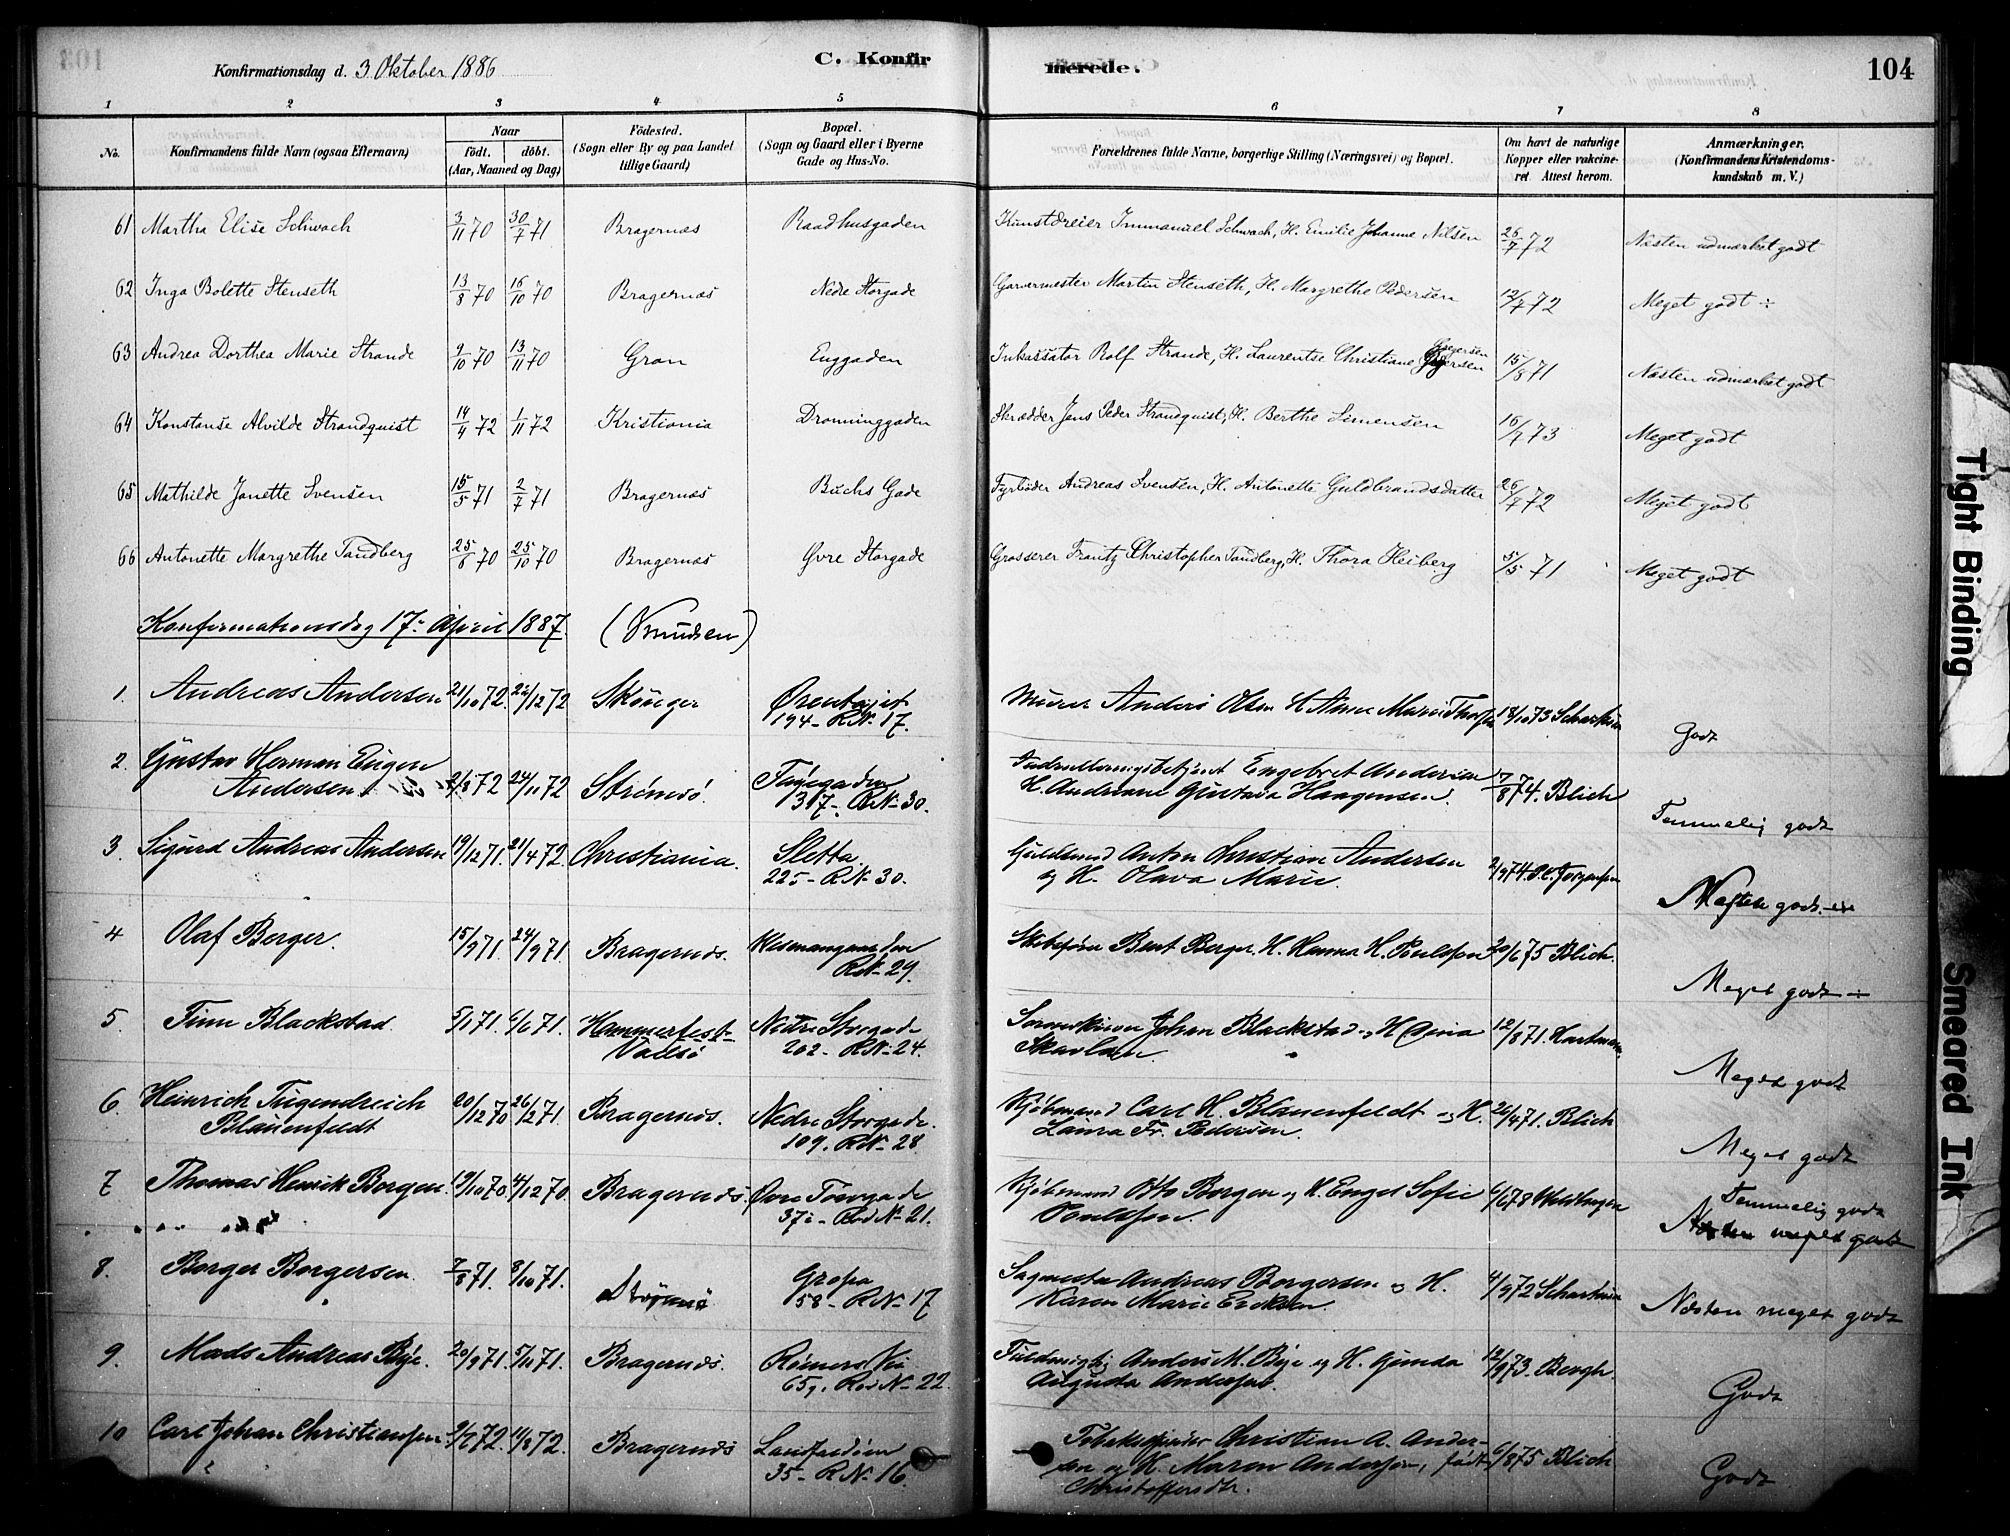 Konfirmationsdag d. 3 Oktober 1886
C. Konfirmerede.
104
1 2 3 4 5 6 7 8
No.
Konfirmandens fulde Navn (ogsaa Efternavn)
Naar
født. døbt.
(Aar, Maaned og Dag)
Födested.
(Sogn eller By og paa Landet
tillige Gaard)
Bopæl.
(Sogn og Gaard eller i Byerne
Gade og Hus-No.
Forældrenes fulde Navne, borgerlige Stilling (Næringsvei) og Bopæl.
Om havt de naturlige
Kopper eller vakcine-
ret Attest herom.
Anmærkninger.
(Konfirmandens Kristendoms-
kundskab m. V.)
61 Martha Elise Schwach 3/11 70 30/7 71 Bragernæs Raadhusgaden Kunstdreier Immanuel Schwach, H. Emilie Johanne Nilsen 26/7 72 Næsten udmærket godt
62 Inga Bolette Stenseth 13/8 70 16/10 70 Bragernæs Nedre Storgade Garvermester Martin Stenseth, H. Margrethe Pedersen 12/7 72 Meget godt ÷
63 Andrea Dorthea Marie Strande 9/10 70 13/11 70 Gran Enggaden Inkassator Rolf Strande, H. Laurentse Christiane 15/8 71 Næsten udmærket godt
64 Konstanse Alvilde Strandquist 14/4 72 1/11 72 Kristiania Dronninggaden Skrædder Jens Peder Strandquist, H. Berthe Simensen 16/7 73 Meget godt
65 Mathilde Janette Svensen 15/5 71 2/7 71 Bragernæs Buchs Gade Fyrbøder Andreas Svensen, H. Antonette Guldbrandsdatter 26/7 72 Meget godt
66 Antonette Margrethe Tandberg 25/8 70 25/10 70 Bragernæs Øvre Storgade Grosserer Frantz Christopher Tandberg, H. Thora Heiberg 5/5 71 Meget godt
Konfirmationsdag 17de April 1887. (Knudsen)
1. Andreas Andersen 21/10 72. 22/12 72 Skouger Murer Anders Olsen H. Anne Marie 18/10 73 Godt
194- R.N. 17.
2. Gustav Herman Eugen 2/8 72 24/11 72 Strømsø. Engebret Andersen 7/8 74. Blich
Andersen. 317- R.N. 30. H. Andriane Gustava Haagensen. Temmelig godt
3. Sigurd Andreas Andersen 19/12 71. 21/4 72. Christiania. Sletta Guldsmed Anton Christian Andersen 2/9 74. Jørgensen
225- R.N. 30. og H. Olava Marie. godt
4 Olaf Berger. 15/9 71. 24/9 71. Bragernæs. Bent Berger, H. Hanna H. Poulsson 20/6 75 Blich.
R.N. 29. Meget godt ÷
5. Finn Blackstad 5/1 71. 5/6 71. Hammerfest Nedre Storgade Sorenskriver Johan Blackstad og H. 12/8 71. Hartmann
Vadsø 202- R.N. 24. Skavlan. Meget godt
6. Heinrich Tugendreich 20/12 70 26/2 71. Bragernæs. Nedre Storgade. Kjøbmand Carl H. Blauenfeldt og H. 26/4 71. Blich
Blauenfeldt 109. R.N. 28. Laura Fr. Pedersen. Meget godt
7 Thomas Henrik Borgen. 19/10 70. 4/12 70. Bragernæs. Øvre Torvgade Kjøbmand Otto Borgen og H. Engel Sofie 6/6 78 Temmelig godt
Rod N. 21. Poulsson. Næsten meget godt
8. Borger Borgersen. 7/8 71. 8/10 71. Strømsø Gropa Sagmester Andreas Borgersen og H. 4/9 72
58- R.N. 17 Karen Marie Eriksen. Næsten meget godt
9. Mads Andreas Bye. 20/9 71. 5/11 71. Bragernæs. Rømers Vei Fuldmægtig Anders M. Bye og H. Gunda 12/9 73. Bergh.
65, Rod N. 22. Augusta Andersen. Godt
10 Carl Johan Christiansen 9/7 72. 11/8 72. Bragernæs Landfaldøen Christian A. Ander- 6/8 75 Blich
35- R.N. 16. sen og H. Maren Andersen, født Godt
Christoffersdtr.
Tight Binding
Smeared Ink